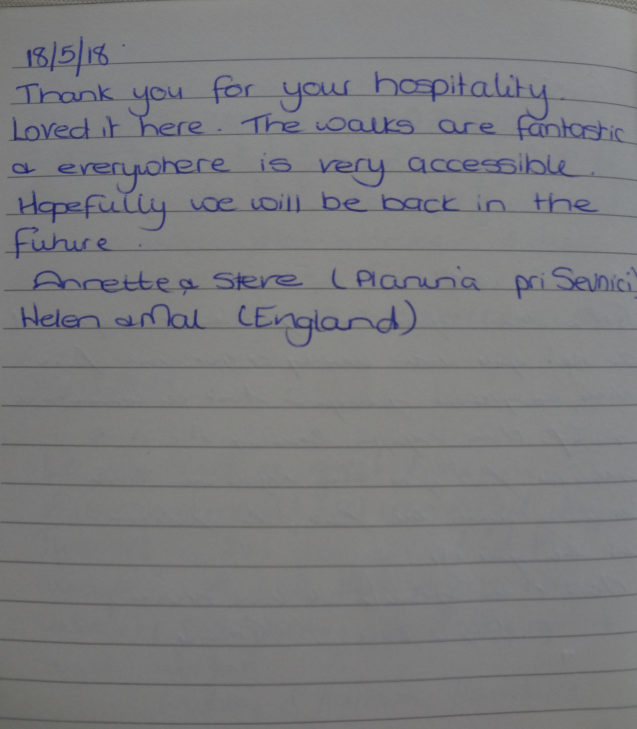 18/5/18
Thank you for your hospitality.
Loved it here. The walks are fantastic
& everywhere is very accessible.
Hopefully we will be back in the
future.
Annette & Steve (Planina pri Sevnici)
Helen & Mal (England)